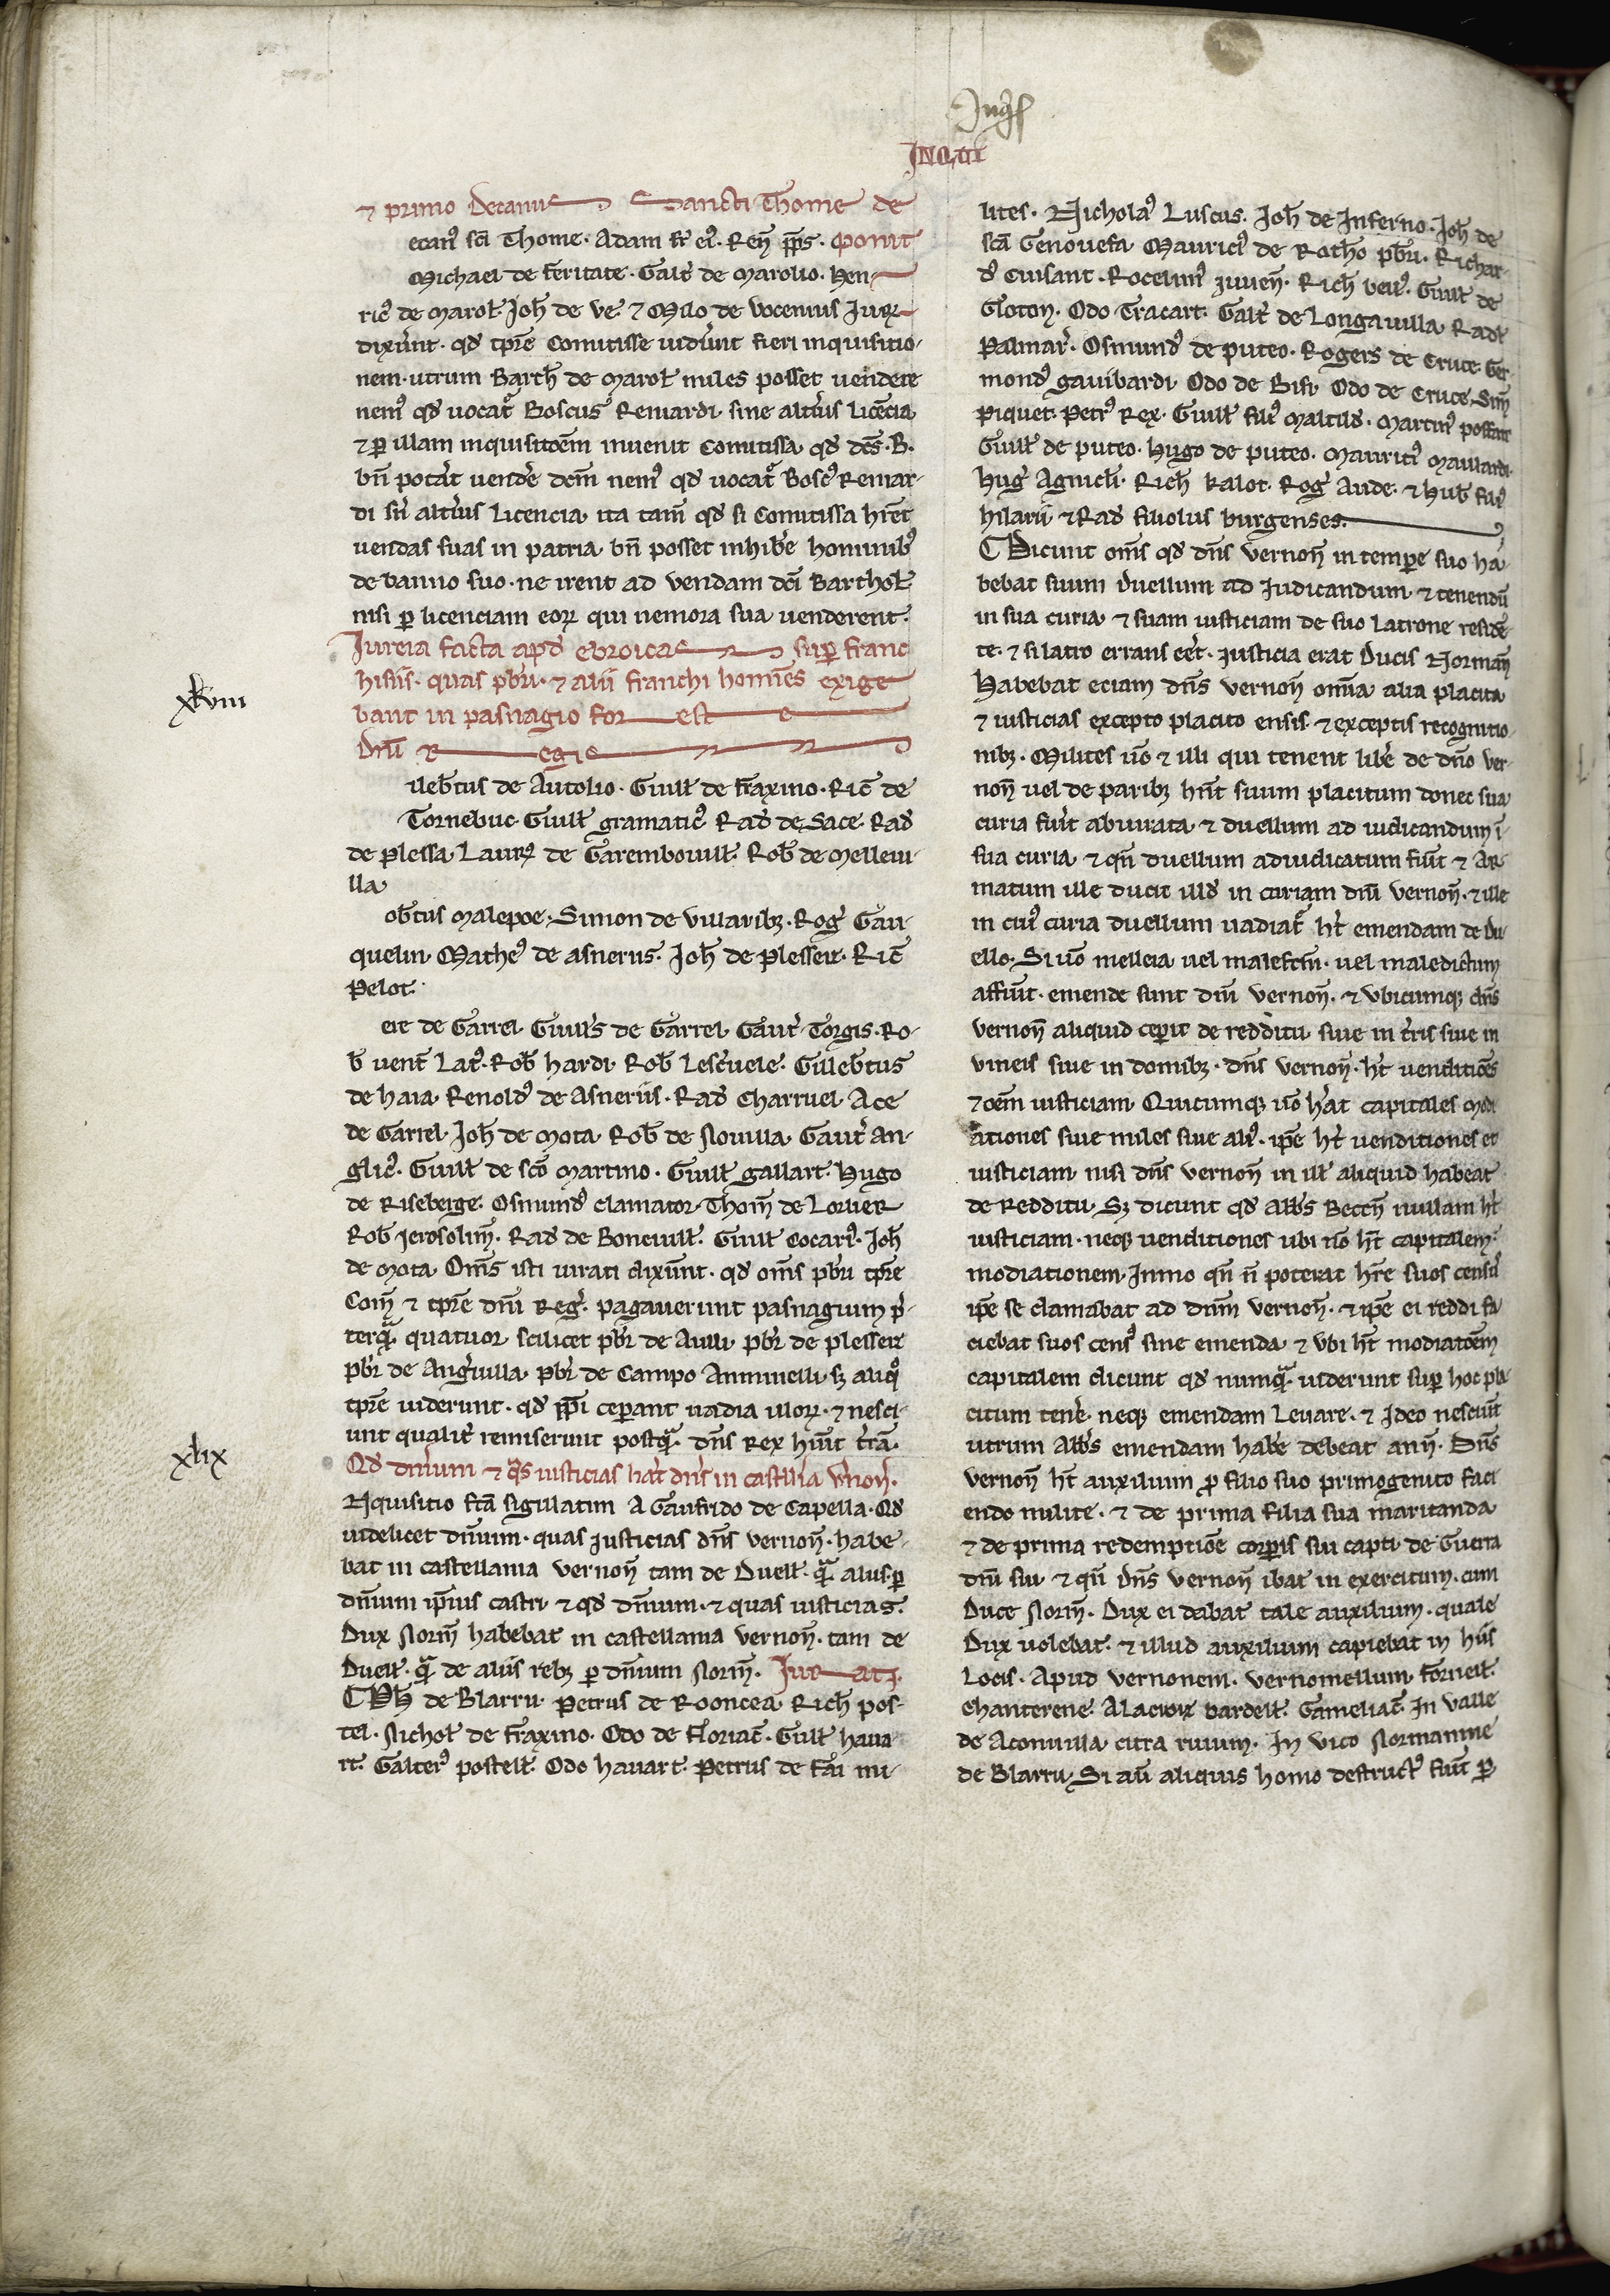 Inq̄s
INQ̄III
⁊ primo Decanus Sancti Thome de
ecanꝰ sc̄i Thome. Adam fr̄ eiꝰ. Ren̄ pp̄s. ponit
Michael de feritate. Galt̄ de Marolio. Hen
ricꝰ de Marol̄. Joh̄ de ue ⁊ Milo de vocenius Jurꝝ
dixer̄unt. qd̄ tp̄re Comitisse uider̄unt fieri inquisitio
nem. utrum Barth̄ de Marol̄ miles posset uendere
nemꝰ qd̄ uocat̄ Boscus Renardi. sine altīus licēcia
⁊ ꝑ illam inquisitōem inuenit Comitissa qd̄ dc̄s. B.
bn̄ potāt uendēe dc̄m nemꝰ qd̄ uocat̄ Boscꝰ Renar
di sn̄ altīus licencia ita tam̄ qd̄ si Comitissa hr̄et
uendas suas in patria bn̄ posset inhibēe hominibꝰ
de banno suo. ne irent ad vendam dc̄i Barthol̄.
nisi ꝑ licenciam eorꝝ qui nemora sua uenderent.
Jureia facta apd̄ ebroicas suꝑ franc
hisiis. quas pb̄ri. ⁊ alii franchi homīes exige
bant in pasnagio for est e
xlviii
Dn̄i R egis
ileb̄tus de Autolio. Guill̄ de fraxino. Ric̄ de
Tornebuc. Guill̄ gramaticꝰ. Rad̄ de Sace. Rad̄
de plessa. Laurꝝ de Garembouill̄. Rob̄ de melleui
lla
ob̄tus malepoe. Simon de villaribꝫ. Roḡ Gau
quelin. Matheꝰ de asneriis. Joh̄ de plesseit. Ric̄
Pelot.
ere de Garrel. Guill̄s de Garrel. Gaut̄ Torgis. Ro
b̄ uent̄ Lat̄. Rob̄ hardi. Rob̄ Lesc̄uele. Gilleb̄tus
de haia. Renoldꝰ de Asneriis. Rad̄ Charruel. Ace
de Garrel. Joh̄ de mota. Rob̄ de Nouilla. Gaut̄ an
glicꝰ. Guill̄ de sc̄o Martino. Guill̄ gallart. Hugo
de Riseberge. Osmundꝰ clamator. Thom̄ de Lorier
Rob̄ ierosolim̄. Rad̄ de Bonciuill̄. Guill̄ Cocarꝰ. Joh̄
de mota. Om̄s isti iurati dixer̄unt. qd̄ om̄s pb̄ri tp̄re
Com̄ ⁊ tp̄re dn̄i Reḡ. pagauerunt pasnagium p̄
terq̄ quatuor. scilicet pb̄r de Auilli. pb̄r de plesseit
pb̄r de Angīuilla. pb̄r de Campo Amminelli. sꝫ aliq̄
tp̄re uiderunt. qd̄ pp̄i ceꝑant uadia illorꝝ. ⁊ nesci
unt qualit̄ remiserunt postq̄. dn̄s Rex hūit t̄rā.
xlix
Qd̄ dnīum ⁊ q̄s iusticias hāt dn̄s in castell̄ia v̄non̄.
Nquisitio fc̄a sigillatim A Gaufrido de Capella. Qd̄
uidelicet dn̄ium. quas iusticias dn̄s vernon̄. habe
bat in castellania vernon̄ tam de Duell̄. q̄ aliis. ꝑ
dn̄ium ip̄ius castri ⁊ qd̄ dn̄ium. ⁊ quas iusticias.
Dux Norm̄ habebat in castellania vernon̄. tam de
Duell̄. q̄ de aliis rebꝫ ꝑ dn̄ium Norm̄. Jur atj.
Ph̄ de Blarru. Petrus de Rooncea. Rich̄ pos
tel. Nichol̄ de fraxino. Odo de Floriac̄. Guill̄ haua
rt. Galterꝰ postell̄. Odo hauart. Petrus de fai mi
lites. Nicholaꝰ Luscus. Joh̄ de Inferno. Joh̄ de
scā Genouefa. Mauricꝰ de Rotho pb̄ri. Richar
dꝰ Cuisant. Rocelinꝰ iuuen̄. Rich̄ ueil̄. Guill̄ de
Gloton̄. Odo Tracart. Galt̄ de Longauilla. Rad̄
Palmar̄. Osmundꝰ de puteo. Rogers de Cruce. Ger
mondꝰ gauibardi. Odo de Bisi. Odo de Cruce. Sim̄
Piquet. Petrꝰ Rex. Guill̄ filꝰ maltild̄. Martinꝰ
Guill̄ de puteo. Hugo de puteo. Mauritiꝰ Maillardi.
huḡ Agnieli. Rich̄ kalot. Roḡ Aude. ⁊ hub̄ filꝰ
hilarii ⁊ Rad̄ filiolus burgenses.
Dicunt om̄s qd̄ dn̄s vernon̄ in tempere suo ha
bebat suum duellum ad Judicandum ⁊ tenendū
in sua curia ⁊ suam iusticiam de suo latrone reside
te. ⁊ si latro errans eēt. iusticia erat Ducis Norman̄
Habebat eciam dn̄s vernon̄ omīa alia placita
⁊ iusticias excepto placito ensis. ⁊ exceptis recognitio
nibꝫ. Milites uō ⁊ illi qui tenent libēe de dn̄o ver
non̄ uel de paribꝫ hn̄t suum placitum donec sua
curia fūit abiurata ⁊ duellum ad iudicandum ī
sua curia ⁊ qn̄ duellum adiudicatum fūit ⁊ Ar
matum ille ducit illd̄ in curiam dn̄i vernon̄. ⁊ ille
in cuiꝰ curia duellum uadiat̄ ht̄ emendam de du
ello. Si uō mellcia uel malefc̄m. uel maledictum
affūit. emende sunt dn̄i vernon̄. ⁊ vbicumqꝫ dn̄s
vernon̄ aliquid ceꝑit de redditu siue in t̄ris siue in
vineis siue in domibꝫ. dn̄s vernon̄. ht̄ uenditiōes
⁊ oēm iusticiam. Quicumqꝫ uō hēat capitales modi
ationes siue miles siue aliꝰ. ip̄e ht̄ uenditiones et
iusticiam. nisi dn̄s vernon̄ in ill̄ aliquid habeat
de Redditu. Sꝫ dicunt qd̄ abb̄s Beccn̄ nullam ht̄
iusticiam. neqꝫ uenditiones ubi nō ht̄ capitalem
modiationem. Inmo qn̄ n̄ poterat hr̄e suos censꝰ
ip̄e se clamabat ad dn̄m vernon̄. ⁊ ip̄e ei reddi fa
ciebat suos censꝰ sine emenda ⁊ vbi ht̄ modiatōem
capitalem dicunt qd̄ numq̄ uiderunt suꝑ hoc pla
citum tenēe. neqꝫ emendam Leuare. ⁊ Ideo nesciūt
utrum abb̄s emendam habēe debeat an n̄. Dn̄s
vernon̄ ht̄ auxilium ꝓ filio suo primogenito faci
endo milite. ⁊ de prima filia sua maritanda
⁊ de prima redemptiōe corꝑis sui capti de Guerra
dn̄i sui ⁊ qn̄ dn̄s vernon̄ ibat in exercitum. cum
Duce Norm̄. Dux ei dabat tale auxilium. quale
Dux uolebat. ⁊ illud auxilium capiebat in hiis
Locis. Apud vernonem. vernonellum. forneil̄.
chanterene. A lacroix bardell̄. Gameliac̄. In valle
de Aconuilla citra riuum. In vico Normannie
de Blarru. Si aū aliquis homo destructꝰ fūit ꝑ